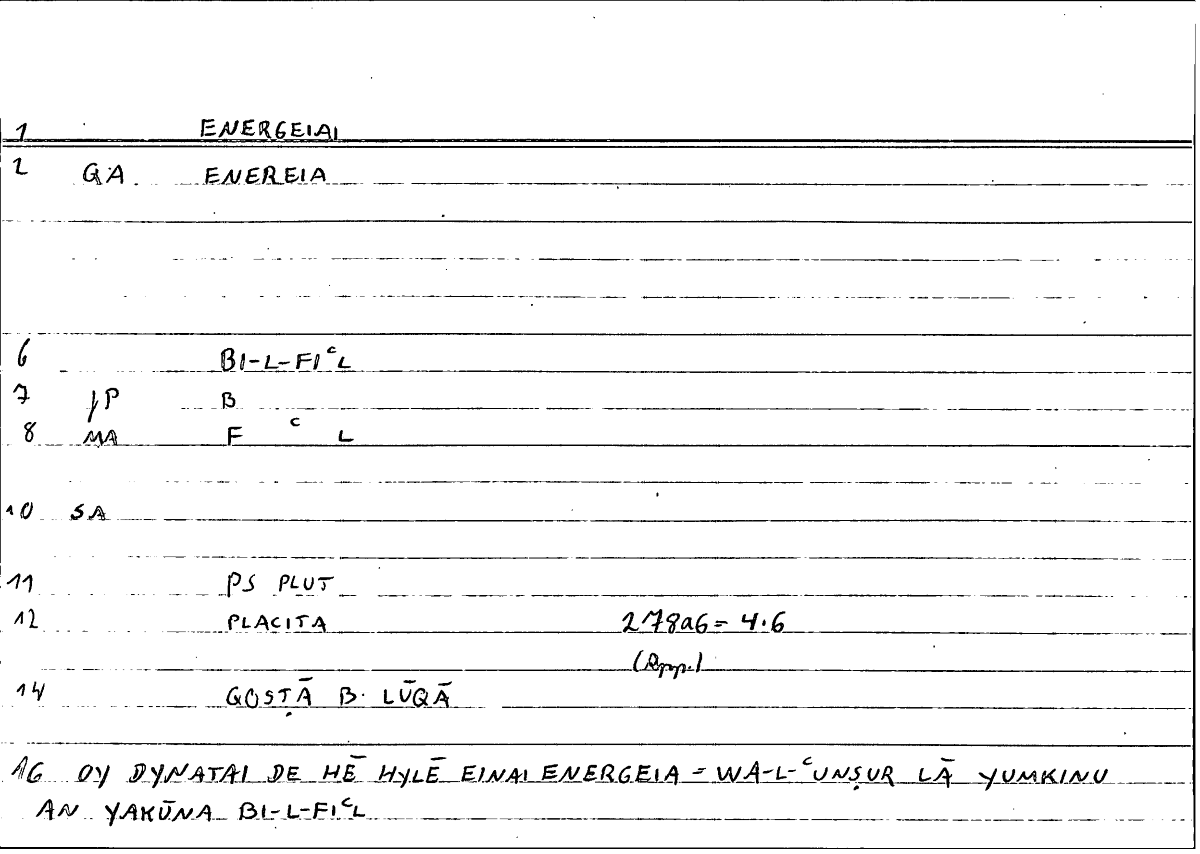 1 ENERGEIAI
2 GA ENEREIA
6 BI-L-FIᶜL
7 JP B
8 MA F ᶜ L
10 SA
11 PS PLUT
12 PLACITA 278a6 = 4.6
14 QOSṬĀ B. LŪQĀ
16 OY DYNATAI DE HĒ HYLĒ EINAI ENERGEIA = WA-L-ᶜUNṢUR LĀ YUMKINU
AN YAKŪNA BI-L-FIᶜL